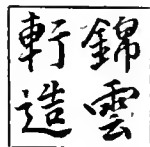 錦雲
軒造